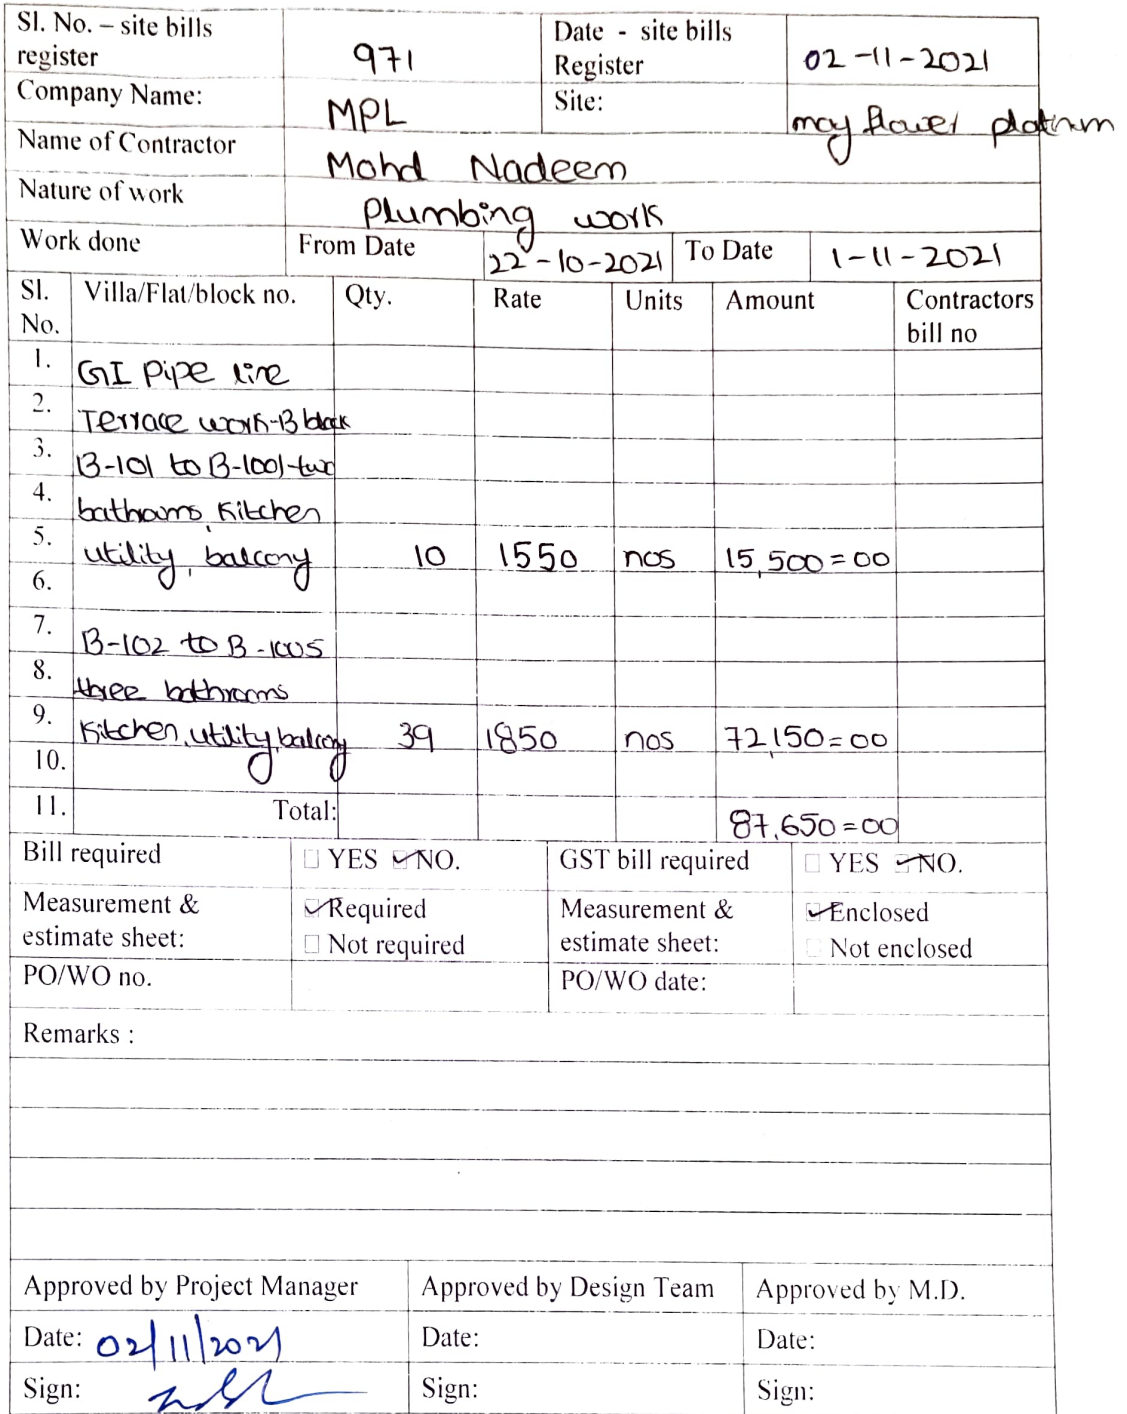 Sl. No. – site bills register 971 Date - site bills Register 02-11-2021
Company Name: MPL Site: may flower platinum
Name of Contractor Mohd Nadeem
Nature of work Plumbing work
Work done From Date 22-10-2021 To Date 1-11-2021
Sl. No. Villa/Flat/block no. Qty. Rate Units Amount Contractors bill no
1. GI Pipe line
2. Terrace work-B block
3. B-101 to B-1001-two
4. bathrooms, Kitchen
5. utility, balcony 10 1550 nos 15,500=00
6.
7. B-102 to B-1005
8. three bathrooms
9. Kitchen, utility, balcony 39 1850 nos 72,150=00
10.
11. Total: 87,650=00
Bill required YES NO. GST bill required YES NO.
Measurement & estimate sheet: Required Measurement & estimate sheet: Enclosed
Not required Not enclosed
PO/WO no. PO/WO date:
Remarks :
Approved by Project Manager Approved by Design Team Approved by M.D.
Date: 02/11/2021 Date: Date:
Sign: Sign: Sign: